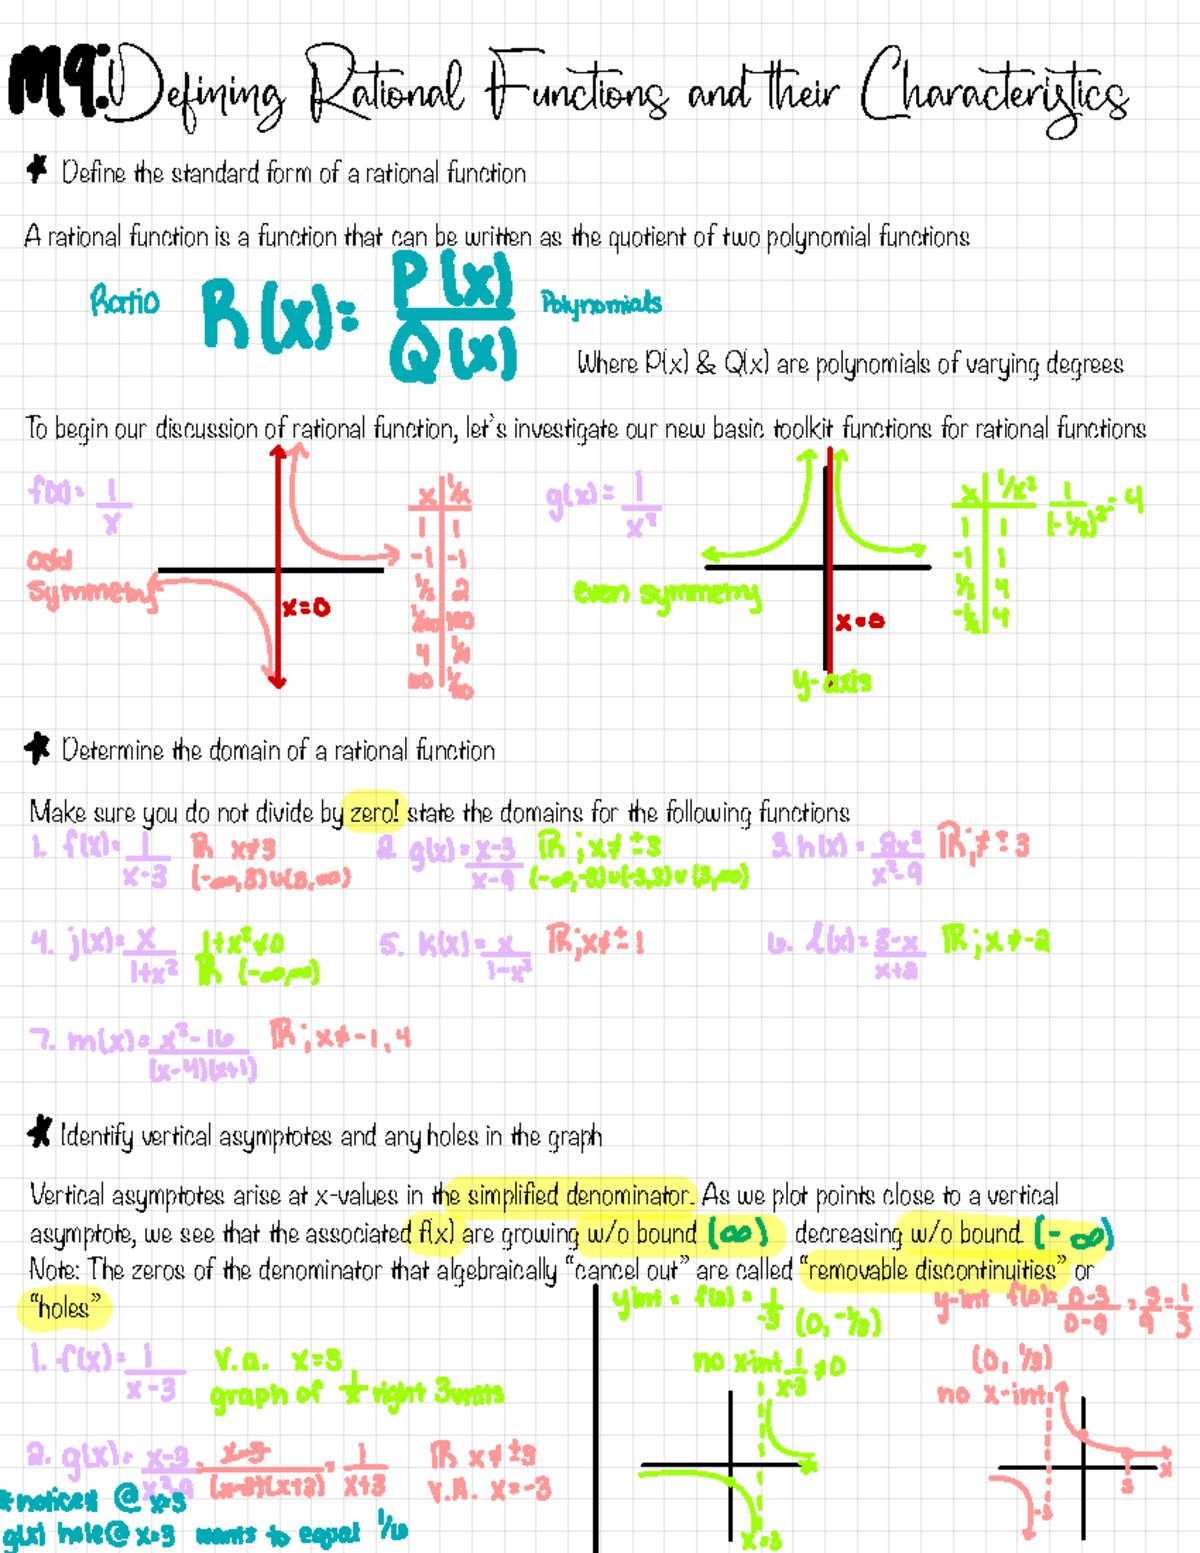 M9: Defining Rational Functions and their Characteristics
★ Define the standard form of a rational function
A rational function is a function that can be written as the quotient of two polynomial functions
Ratio R(x) = P(x)/Q(x) Polynomials
Where P(x) & Q(x) are polynomials of varying degrees
To begin our discussion of rational function, let's investigate our new basic toolkit functions for rational functions
f(x) = 1/x
odd symmetry
x=0
x | 1/x
1 | 1
-1 | -1
1/2 | 2
4 | 1/4
g(x) = 1/x²
even symmetry
x=0
y-axis
x | 1/x² 1/(-1/2)² = 4
1 | 1
-1 | 1
1/2 | 4
-1/2 | 4
★ Determine the domain of a rational function
Make sure you do not divide by zero! state the domains for the following functions
1. f(x) = 1/(x-3) ℝ x≠3 (-∞,3)∪(3,∞)
2. g(x) = (x-3)/(x-9) ℝ; x≠±3 (-∞,-3)∪(-3,3)∪(3,∞)
3. h(x) = 2x³/(x²-9) ℝ; ≠±3
4. j(x) = x/(1+x²) 1+x²≠0 ℝ (-∞,∞)
5. k(x) = x/(1-x²) ℝ; x≠±1
6. l(x) = (3-x)/(x+2) ℝ; x≠-2
7. m(x) = (x²-16)/((x-4)(x+1)) ℝ; x≠-1,4
★ Identify vertical asymptotes and any holes in the graph
Vertical asymptotes arise at x-values in the simplified denominator. As we plot points close to a vertical
asymptote, we see that the associated f(x) are growing w/o bound (∞) decreasing w/o bound. (-∞)
Note: The zeros of the denominator that algebraically “cancel out” are called “removable discontinuities” or
“holes”
1. f(x) = 1/(x-3) V.a. x=3
graph of 1/x right 3 units
2. g(x) = (x-3)/(x²-9) = (x-3)/((x-3)(x+3)) = 1/(x+3) ℝ x≠±3
V.A. x=-3
* notices @ x=3
g(x) hole @ x=3 wants to equal 1/6
yint = f(0) = 1/-3 (0, -1/3)
no xint 1/(x-3) ≠ 0
x=3
y-int f(0) = (0-3)/(0-9) = 3/9 = 1/3
(0, 1/3)
no x-int
-3
3
x